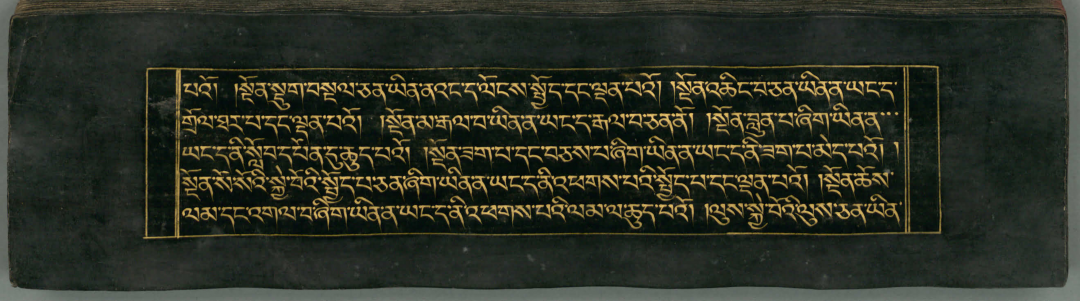 པའོ། །སྔོན་སྡུག་བསྔལ་ཅན་ཡིན་ན་འང་ད་ལོངས་སྤྱོད་དང་ལྡན་པའོ། །སྔོན་འཆིང་བ་ཅན་ཡིནན་ཡང་ད་
གྲོལ་ཐར་པ་དང་ལྡན་པའོ། །སྔོན་མ་རྒྱལ་བ་ཡིནན་ཡང་ད་རྒྱལ་བ་ཅནནོ། །སྔོན་བླུན་པ་ཞིག་ཡིནན་
ཡང་ད་ནི་སློབ་དཔོན་དུ་ཆུད་པའོ། །སྔོན་ཟག་པ་དང་བཅས་པ་ཞིག་ཡིནན་ཡང་ད་ནི་ཟག་པ་མེད་པའོ། །
སྔོན་སོ་སོའི་སྐྱེ་བོའི་སྤྱོད་པ་ཅན་ཞིག་ཡིནན་ཡང་ད་ནི་འཕགས་པའི་སྤྱོད་པ་དང་ལྡན་པའོ། །སྔོན་ཆོས་
ལམ་དང་འགལ་བ་ཞིག་ཡིནན་ཡང་ད་ནི་འཕགས་པའི་ལམ་ལ་ཆུད་པའོ། །ལུས་སྐྱེ་བོའི་ལུས་ཅན་ཡིན་